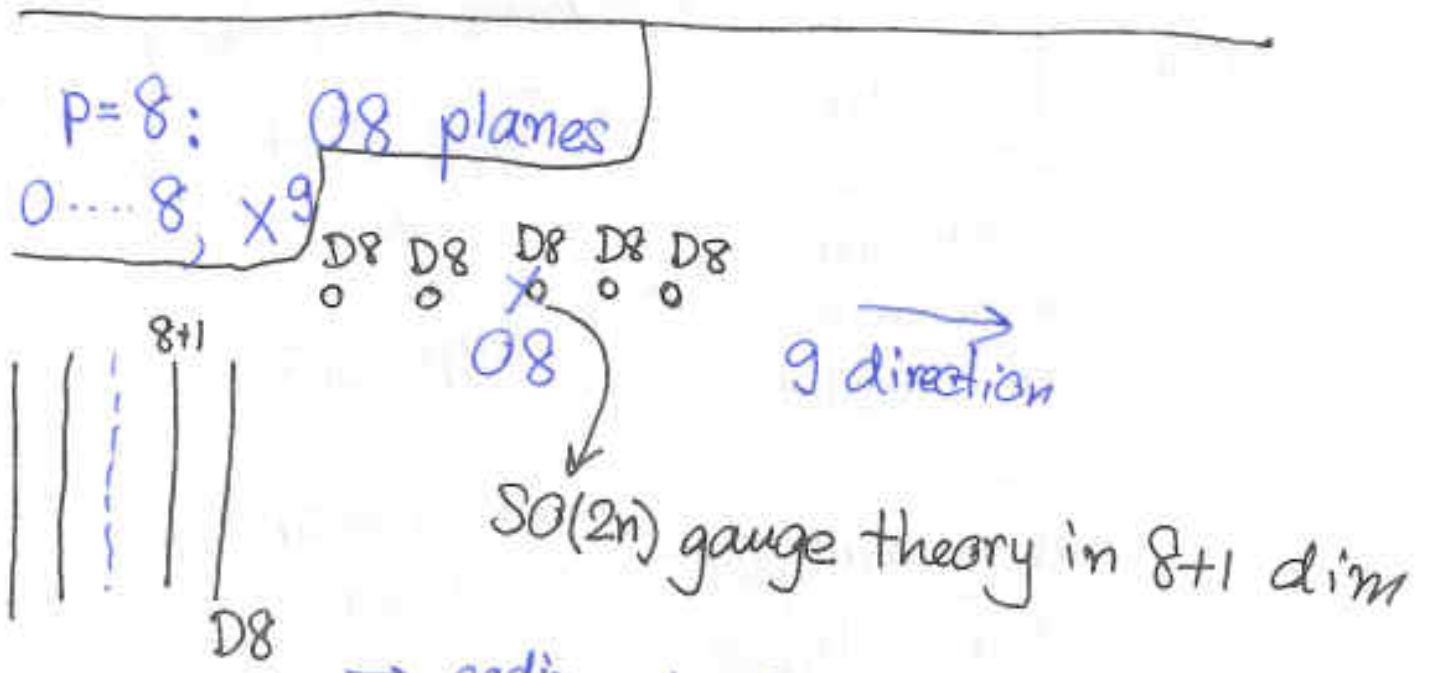 p=8: O8 planes
0....8, X⁹
D8 D8 D8 D8 D8
O8
8+1
9 direction
SO(2n) gauge theory in 8+1 dim
D8